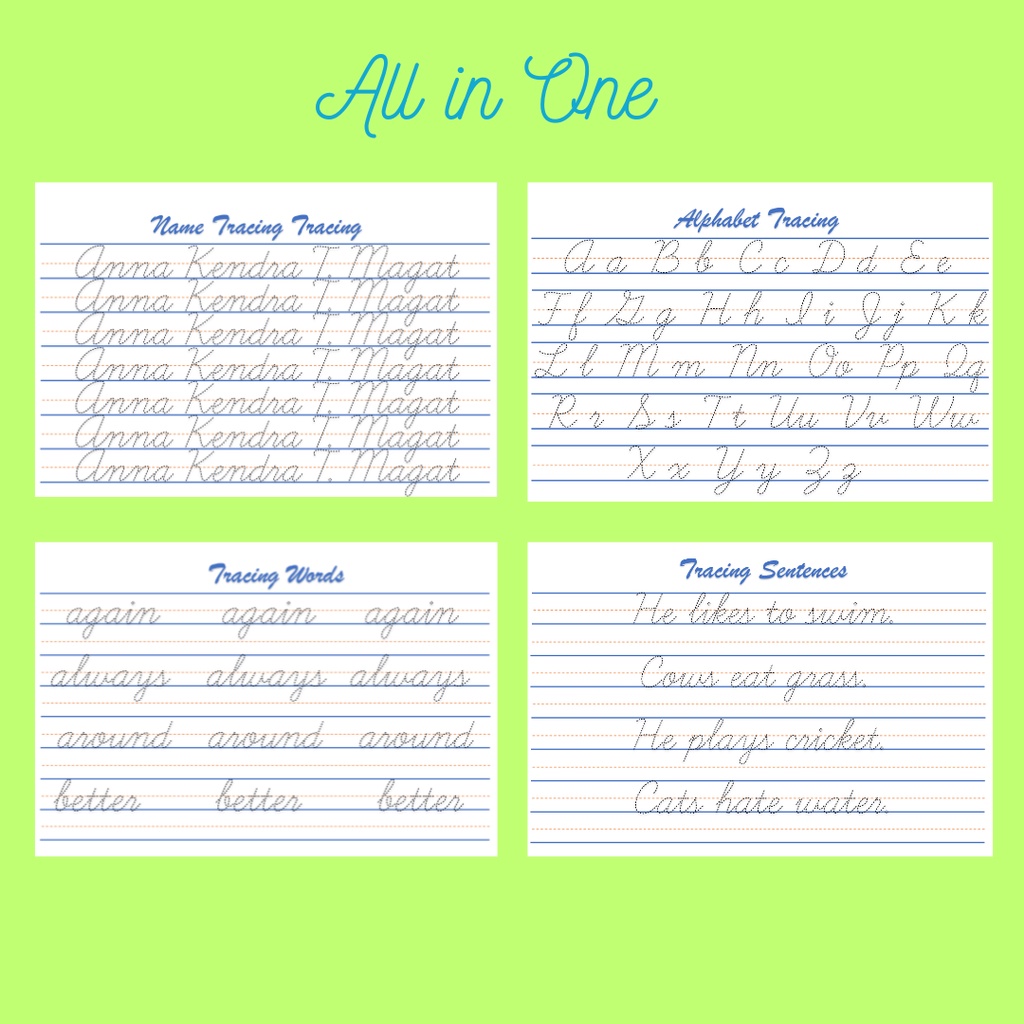 All in One
Name Tracing Tracing
Anna Kendra T. Magat
Anna Kendra T. Magat
Anna Kendra T. Magat
Anna Kendra T. Magat
Anna Kendra T. Magat
Anna Kendra T. Magat
Anna Kendra T. Magat
Alphabet Tracing
A a B b C c D d E e
F f G g H h I i J j K k
L l M m N n O o P p Q q
R r S s T t U u V v W w
X x Y y Z z
Tracing Words
again again again
always always always
around around around
better better better
Tracing Sentences
He likes to swim.
Cows eat grass.
He plays cricket.
Cats hate water.